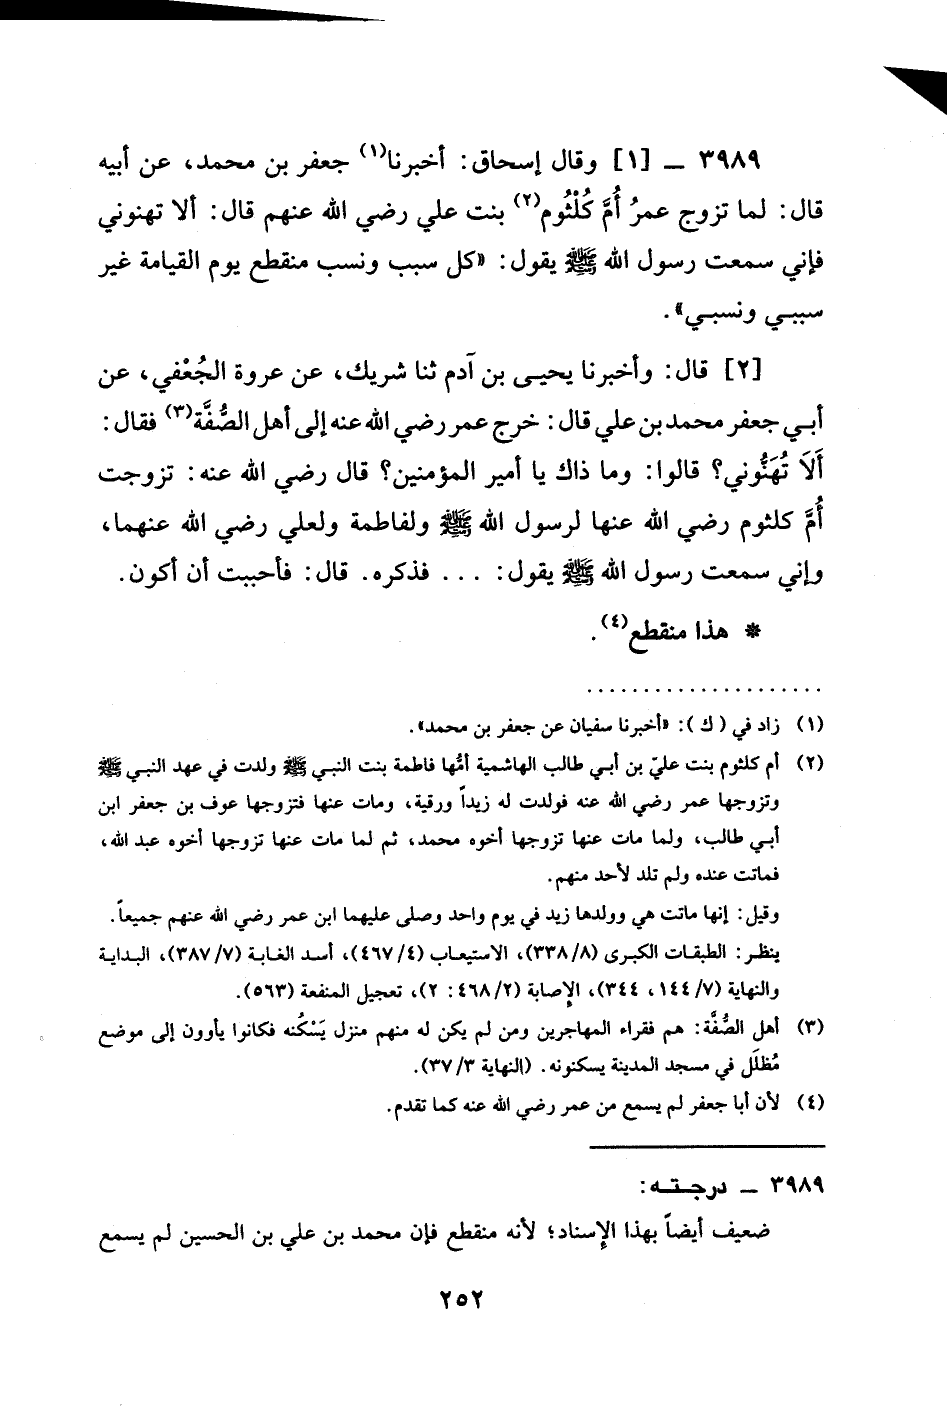 ٣٩٨٩ ـ [١] وقال إسحاق: أخبرنا(١) جعفر بن محمد، عن أبيه
قال: لما تزوج عمرُ أُمَّ كُلْثُوم(٢) بنت علي رضي الله عنهم قال: ألا تهنوني
فإني سمعت رسول الله ﷺ يقول: «كل سبب ونسب منقطع يوم القيامة غير
سببي ونسبي».
[٢] قال: وأخبرنا يحيى بن آدم ثنا شريك، عن عروة الجُعْفي، عن
أبي جعفر محمد بن علي قال: خرج عمر رضي الله عنه إلى أهل الصُّفَّة(٣) فقال:
أَلَا تُهَنُّوني؟ قالوا: وما ذاك يا أمير المؤمنين؟ قال رضي الله عنه: تزوجت
أُمَّ كلثوم رضي الله عنها لرسول الله ﷺ ولفاطمة ولعلي رضي الله عنهما،
وإني سمعت رسول الله ﷺ يقول: ... فذكره. قال: فأحببت أن أكون.
* هذا منقطع(٤).
.....................
(١) زاد في (ك): «أخبرنا سفيان عن جعفر بن محمد».
(٢) أم كلثوم بنت عليّ بن أبي طالب الهاشمية أمُّها فاطمة بنت النبي ﷺ ولدت في عهد النبي ﷺ
وتزوجها عمر رضي الله عنه فولدت له زيداً ورقية، ومات عنها فتزوجها عوف بن جعفر ابن
أبي طالب، ولما مات عنها تزوجها أخوه محمد، ثم لما مات عنها تزوجها أخوه عبد الله،
فماتت عنده ولم تلد لأحد منهم.
وقيل: إنها ماتت هي وولدها زيد في يوم واحد وصلى عليهما ابن عمر رضي الله عنهم جميعاً.
ينظر: الطبقات الكبرى (٣٣٨/٨)، الاستيعاب (٤٦٧/٤)، أسد الغابة (٣٨٧/٧)، البداية
والنهاية (١٤٤/٧، ٣٤٤)، الإصابة (٤٦٨/٢: ٢)، تعجيل المنفعة (٥٦٣).
(٣) أهل الصُّفَّة: هم فقراء المهاجرين ومن لم يكن له منهم منزل يَسْكُنه فكانوا يأوون إلى موضع
مُظَلَل في مسجد المدينة يسكنونه. (النهاية ٣٧/٣).
(٤) لأن أبا جعفر لم يسمع من عمر رضي الله عنه كما تقدم.
٣٩٨٩ ـ درجته:
ضعيف أيضاً بهذا الإسناد؛ لأنه منقطع فإن محمد بن علي بن الحسين لم يسمع
٢٥٢